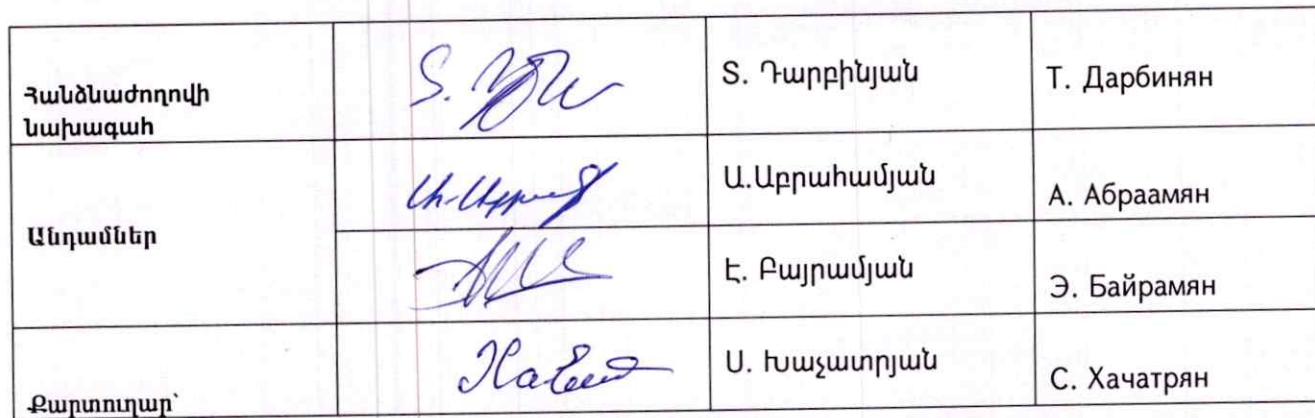 Հանձնաժողովի
նախագահ
Տ. Դարբինյան
Т. Дарбинян
Անդամներ
Ա.Աբրահամյան
А. Абраамян
Է. Բայրամյան
Э. Байрамян
Քարտուղար՝
Ս. Խաչատրյան
С. Хачатрян